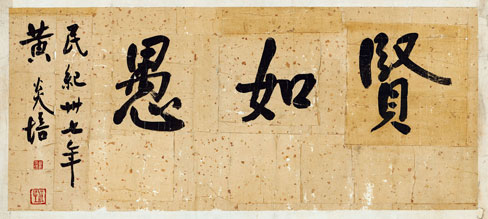 賢如愚
民紀卅七年
黃炎培